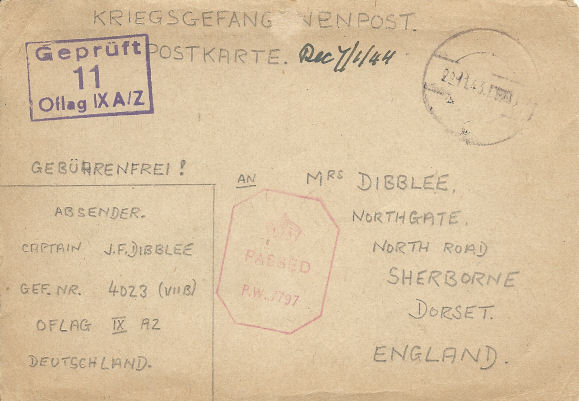 KRIEGSGEFANGENENPOST.
POSTKARTE. Rec 7/1/44
Geprüft
11
Oflag IX A/Z
GEBÜHRENFREI!
ABSENDER.
CAPTAIN J.F. DIBBLEE
GEF. NR. 4023 (VIIB)
OFLAG IX AZ
DEUTSCHLAND.
AN MRS DIBBLEE.
NORTHGATE.
NORTH ROAD
SHERBORNE
DORSET.
ENGLAND.
PASSED
P.W. 7797